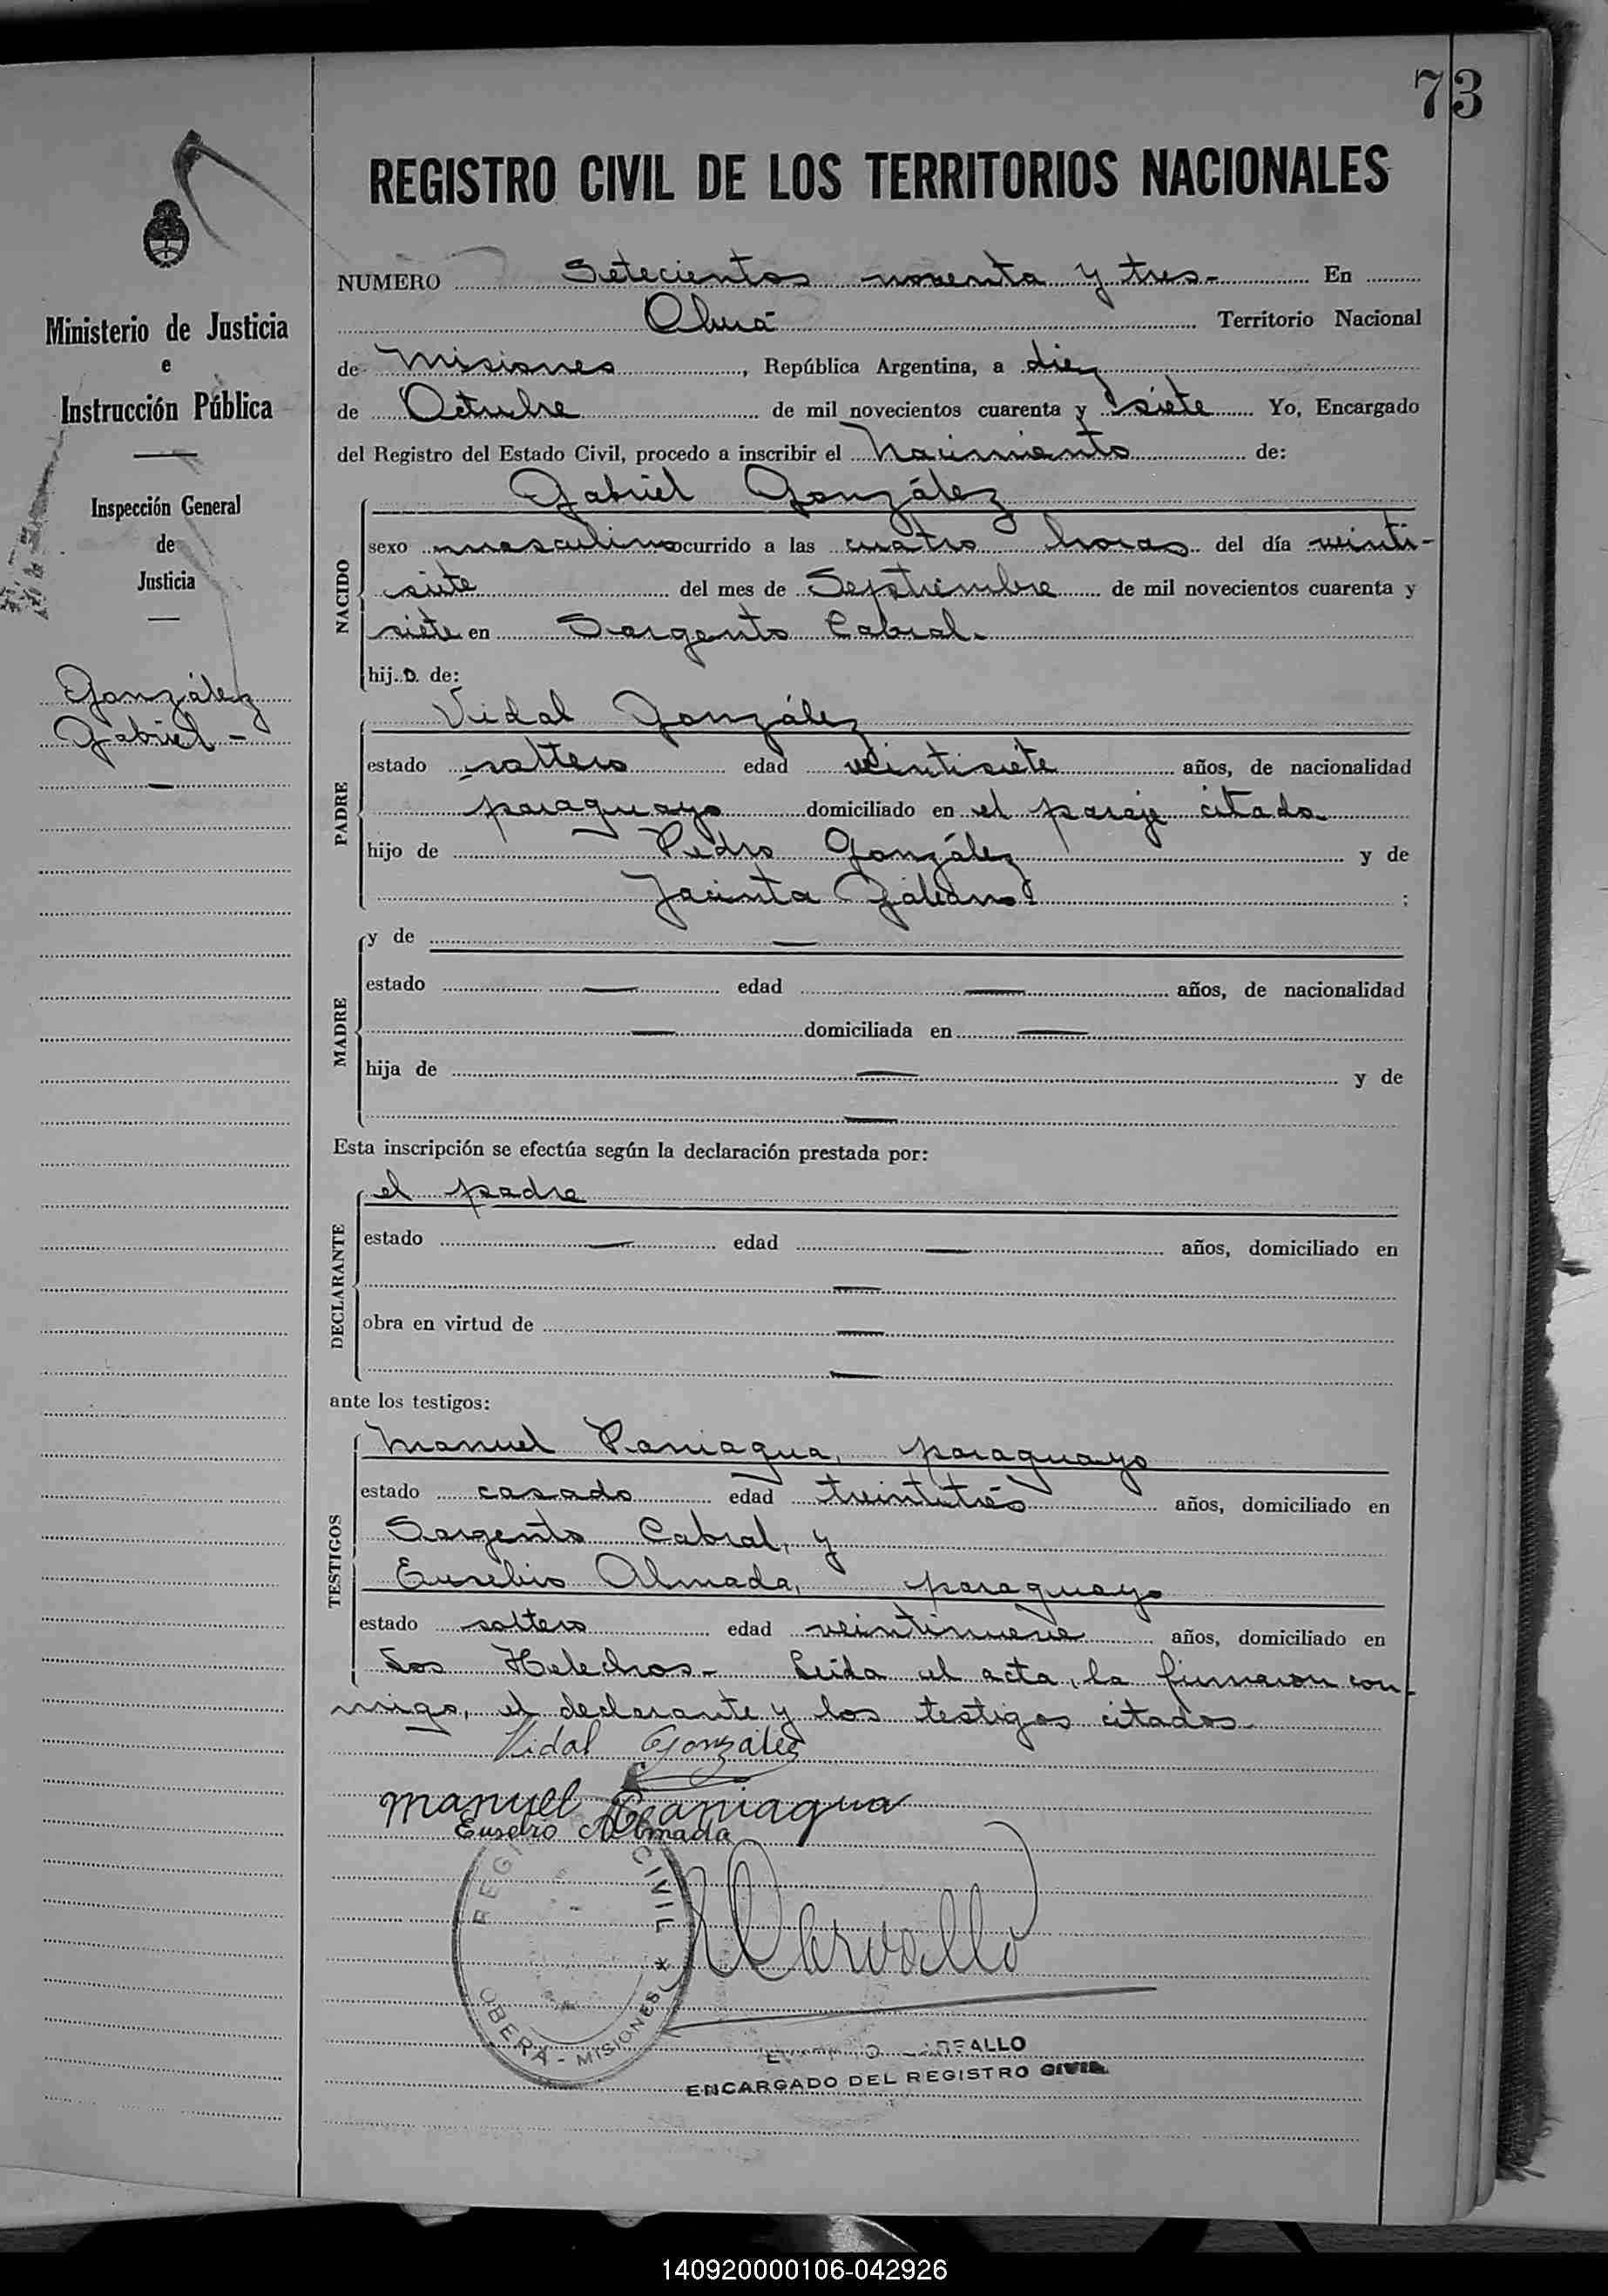 73
REGISTRO CIVIL DE LOS TERRITORIOS NACIONALES
Ministerio de Justicia
e
Instrucción Pública
Inspección General
de
Justicia
González
Gabriel -
NUMERO Setecientos noventa y tres - En
Oberá Territorio Nacional
de Misiones, República Argentina, a diez
de Octubre de mil novecientos cuarenta y siete Yo, Encargado
del Registro del Estado Civil, procedo a inscribir el Nacimiento de:
Gabriel González
NACIDO
sexo masculino ocurrido a las cuatro horas del día veinti-
siete del mes de Septiembre de mil novecientos cuarenta y
siete en Sargento Cabral.
hijo de:
PADRE
Vidal González
estado soltero edad veintisiete años, de nacionalidad
paraguayo domiciliado en el paraje citado
hijo de Pedro González y de
Jacinta Galeano;
MADRE
y de —
estado — edad — años, de nacionalidad
— domiciliada en —
hija de — y de
—
Esta inscripción se efectúa según la declaración prestada por:
DECLARANTE
el padre
estado — edad — años, domiciliado en
—
obra en virtud de —
—
ante los testigos:
TESTIGOS
Manuel Paniagua, paraguayo
estado casado edad treintitrés años, domiciliado en
Sargento Cabral, y
Eusebio Almada, paraguayo
estado soltero edad veintinueve años, domiciliado en
Los Helechos - Leída el acta, la firmaron con-
migo, el declarante y los testigos citados.
Vidal González
Manuel Paniagua
Eusebio Almada
Carvallo
REGI CIVIL
OBERÁ - MISIONES
ALLO
ENCARGADO DEL REGISTRO CIVIL
140920000106-042926